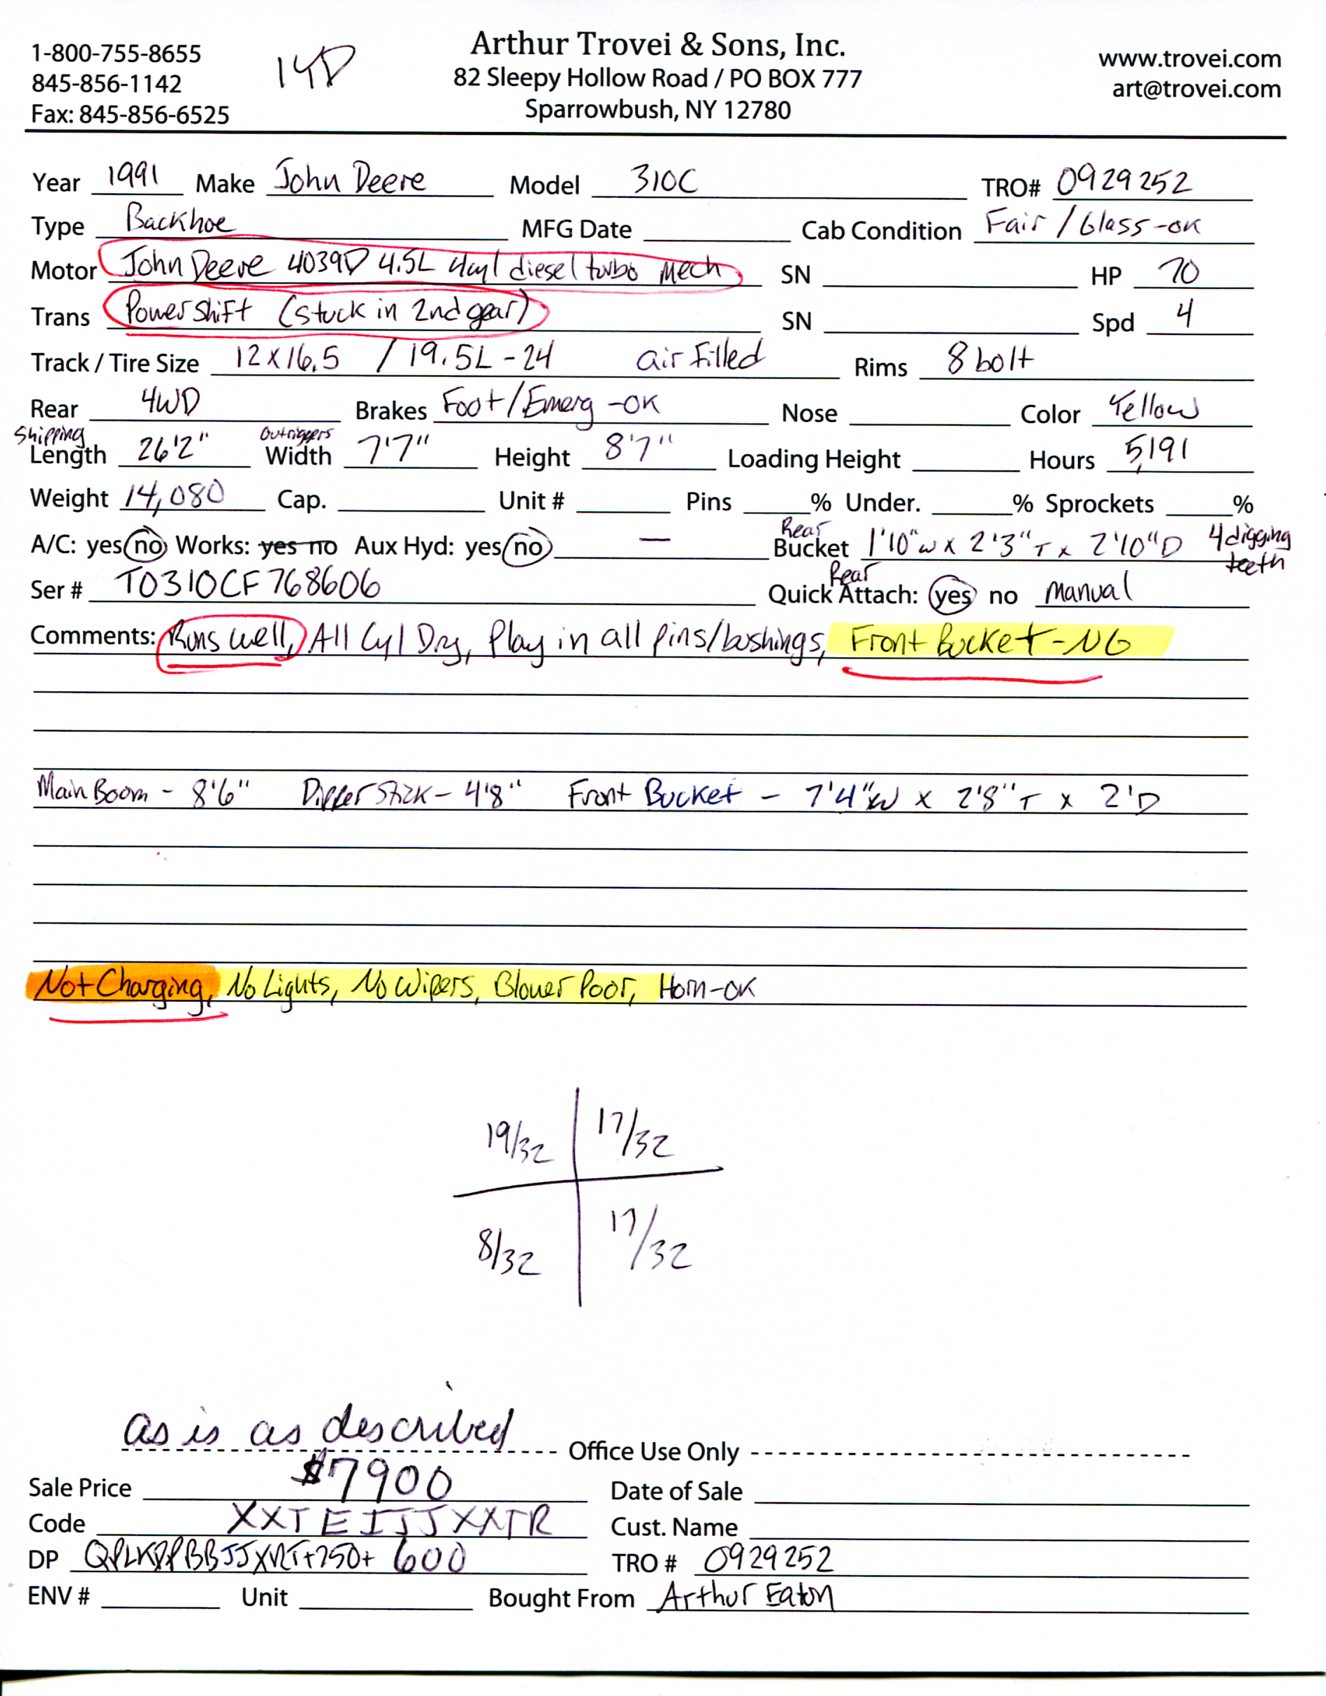 1-800-755-8655
845-856-1142
Fax: 845-856-6525
14D
Arthur Trovei & Sons, Inc.
82 Sleepy Hollow Road / PO BOX 777
Sparrowbush, NY 12780
www.trovei.com
art@trovei.com
Year 1991 Make John Deere Model 310C TRO# 0929252
Type Backhoe MFG Date Cab Condition Fair / Glass-ok
Motor John Deere 4039D 4.5L 4cyl diesel turbo mech SN HP 70
Trans Powershift (stuck in 2nd gear) SN Spd 4
Track / Tire Size 12x16.5 / 19.5L-24 air filled Rims 8 bolt
Rear 4WD Brakes Foot/Emerg-ok Nose Color Yellow
Shipping Length 26'2" Outriggers Width 7'7" Height 8'7" Loading Height Hours 5,191
Weight 14,080 Cap. Unit # Pins % Under. % Sprockets %
A/C: yes no Works: yes no Aux Hyd: yes no — Rear Bucket 1'10"W x 2'3"T x 2'10"D 4 digging teeth
Ser # T0310CF768606 Rear Quick Attach: yes no manual
Comments: Runs well, All Cyl Dry, Play in all pins/bushings, Front Bucket-NG
Main Boom - 8'6" Dipper Stick - 4'8" Front Bucket - 7'4"W x 2'8"T x 2'D
Not Charging, No Lights, No Wipers, Blower Poor, Horn-ok
19/32 17/32
8/32 17/32
as is as described Office Use Only
Sale Price $7900 Date of Sale
Code XXTEIJJXXTR Cust. Name
DP 600 TRO # 0929252
ENV # Unit Bought From Arthur Eaton